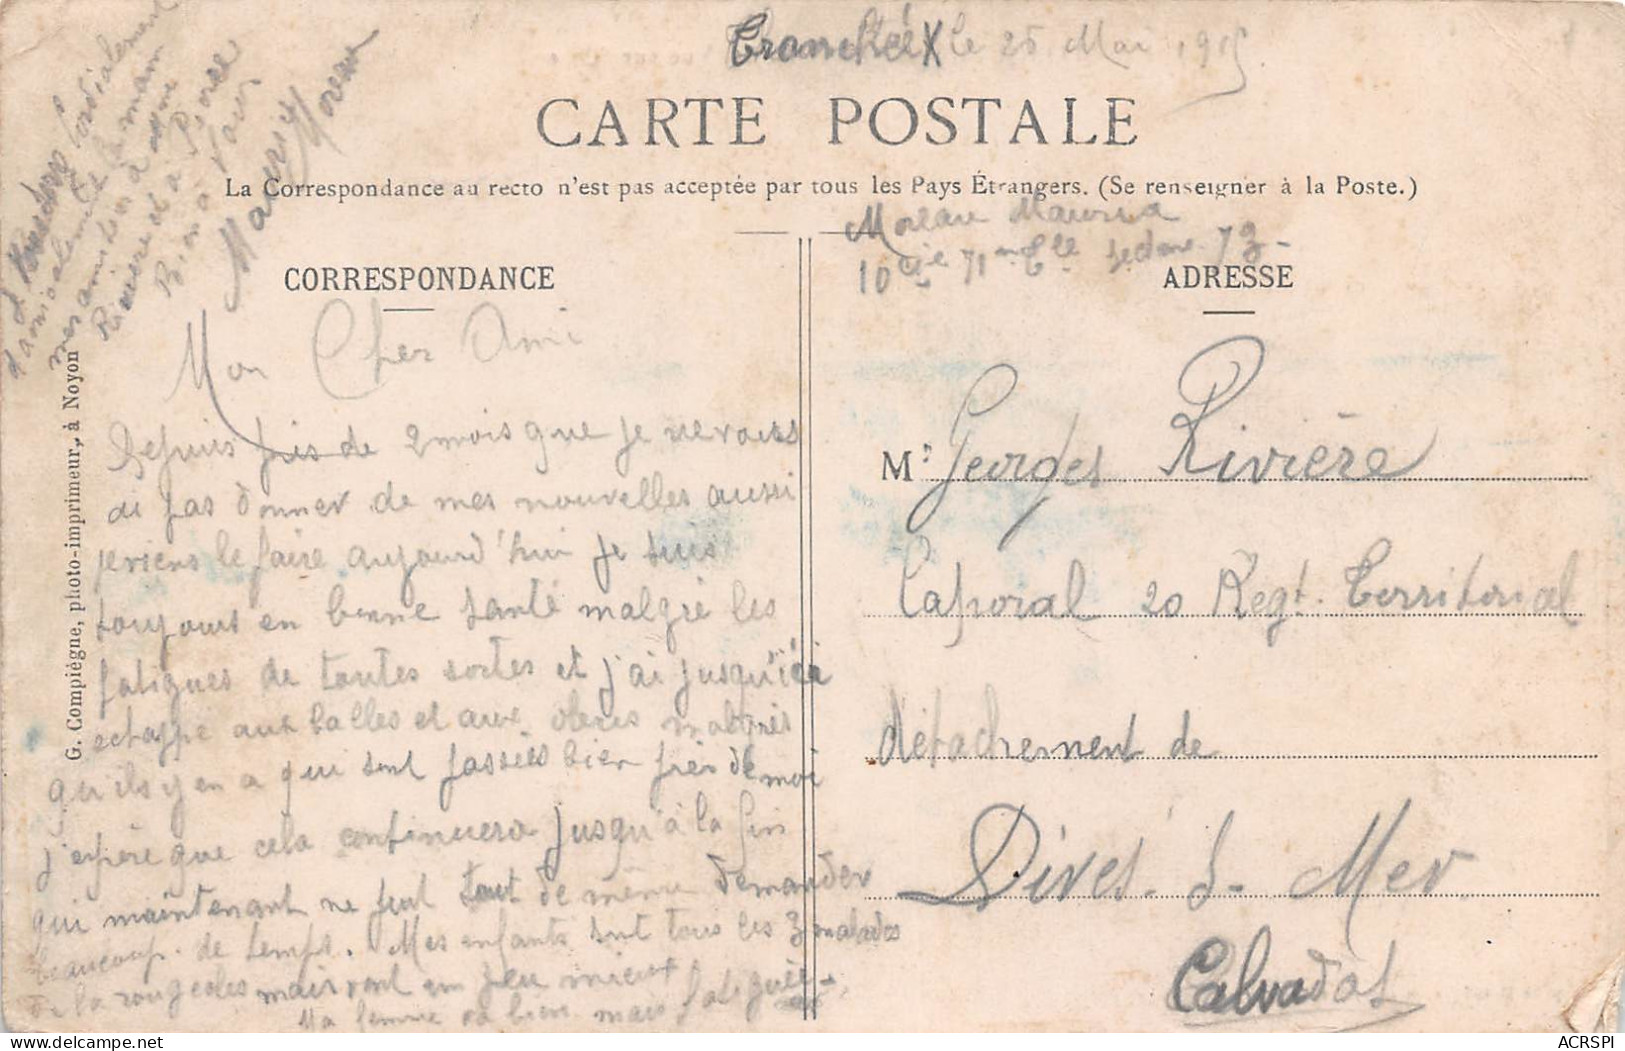 Tranchée X le 25 Mai 1915
CARTE POSTALE
La Correspondance au recto n'est pas acceptée par tous les Pays Étrangers. (Se renseigner à la Poste.)
Moreau Maurice
10 Cie 71 me
CORRESPONDANCE
ADRESSE
Mon Cher Ami
Depuis près de 2 mois que je ne vous
ai pas donner de mes nouvelles aussi
je viens le faire aujourd'hui je suis
toujours en bonne santé malgré les
fatigues de toutes sortes et j'ai jusqu'ici
echappé aux balles et aux obus malgrés
qu'ils y en a qui sont passées bien près de moi
j'espère que cela continuera jusqu'à la fin
qui maintenant ne peut tout de même demander
beaucoup de temps. Mes enfants sont tous les 3 malades
de la rougeoles mais vont un peu mieux
Ma femme va bien mais fatiguée
cordialement
d'amis
la main
mes amitiés à
Rivière et à
Bien à vous
Maurice Moreau
G. Compiègne, photo-imprimeur, à Noyon
Mr Georges Rivière
Caporal 20 Regt. Territorial
détachement de
Dives. s- Mer
Calvados
ACRSPI